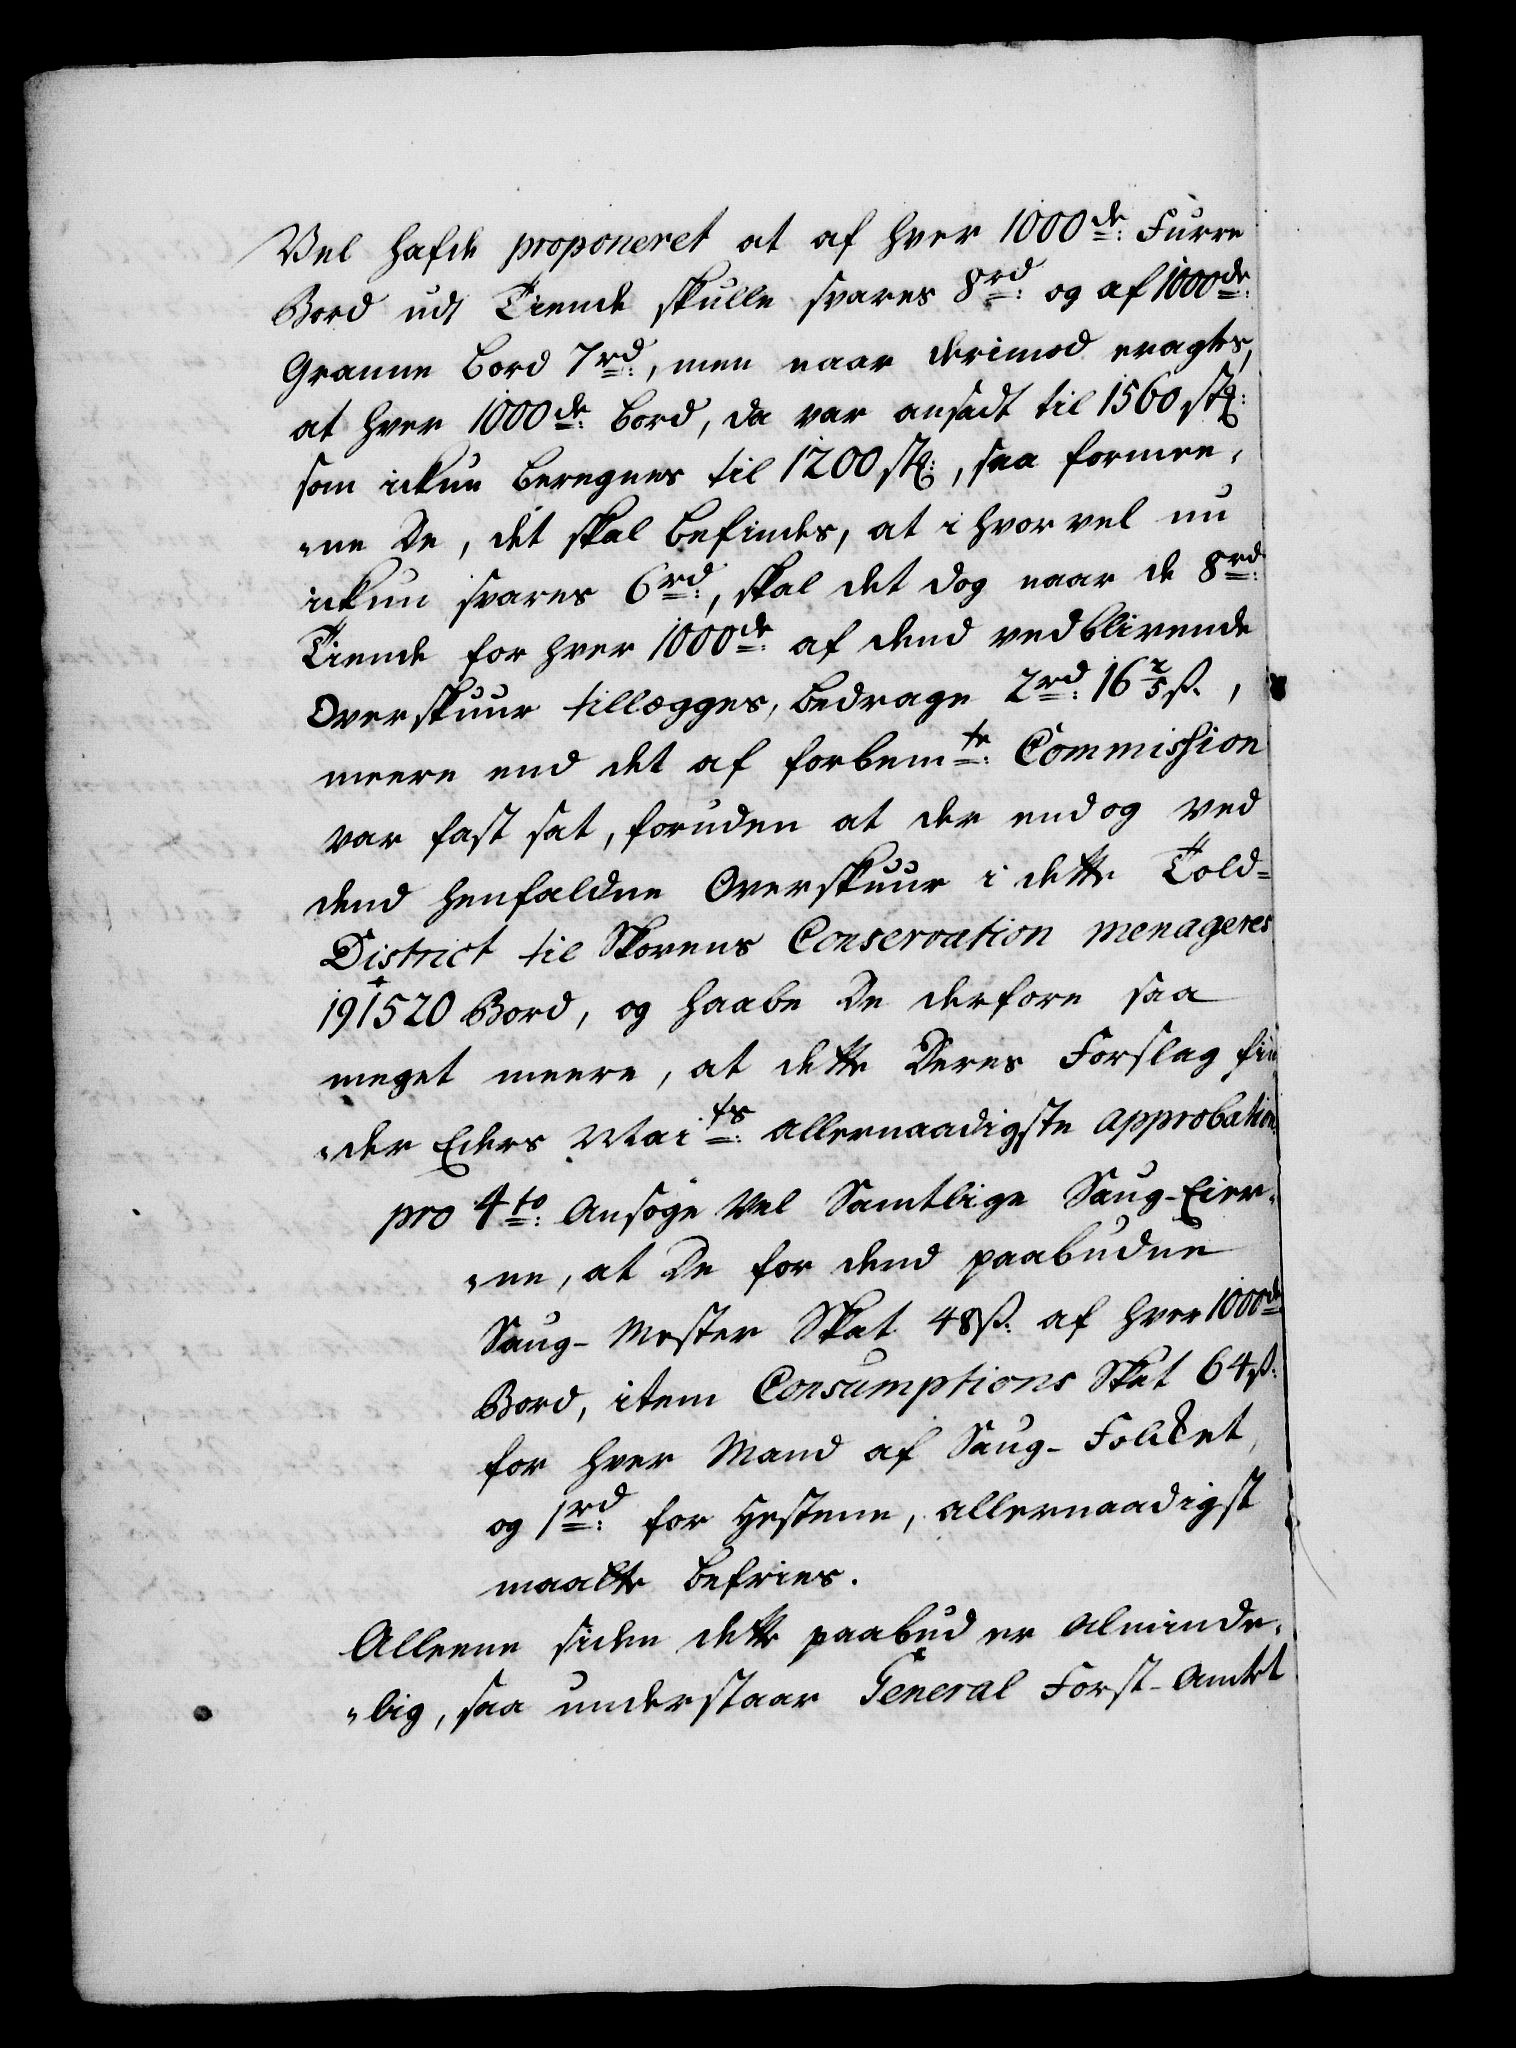 Vel hafde proponeret at af hver 1000de: Furre
Bord udi Tiende skulle svares 8rd: og af 1000de:
Granne bord 7rd:, men naar derimod eragtes,
at hver 1000de: bord, da var ansadt til 1560 stk:
som ickun beregnes til 1200 stk:, saa formee,
„ne De, det skal befindes, at i hvor vel nu
ickun svares 6rd:, skal det dog naar de 8rd:
Tiende for hver 1000de: af dend ved blivende
Overskuur tillægges, bedrage 2rd: 16 2/5 ß.,
meere end det af forbemte: Commission
var fast sat, foruden at der end og ved
dend henfaldne Overskuur i dette Told=
District til Skovens Conservation menageres
191520 Bord, og haabe De derfore saa
meget meere, at dette Deres Forslag fin
„der Eders Maits: allernaadigste approbation.
pro 4to: Ansøge Vel Samtlige Saug-Eier„
„ne, at De for dend paabudne
Saug-Mester Skat 48ß: af hver 1000de:
Bord, item Consumptions Skat 64ß:
for hver Mand af Saug-Folcket,
og 1rd: for Hestene, allernaadigst
maatte befries.
Alleene siden dette paabud er Alminde„
„lig, saa understaar General Forst-Amtet